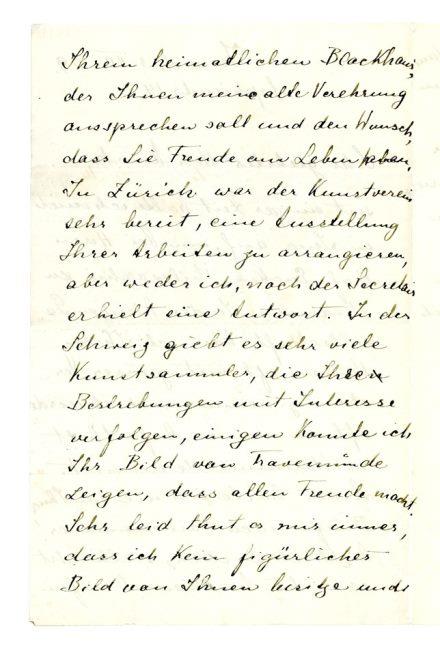 Ihrem heimatlichen Blockhaus,
der Ihnen meine alte Verehrung
aussprechen soll und den Wunsch,
dass Sie Freude am Leben haben.
In Zürich war der Kunstverein
sehr bereit, eine Ausstellung
Ihrer Arbeiten zu arrangieren,
aber weder ich, noch der Secretair
erhielt eine Antwort. In der
Schweiz giebt es sehr viele
Kunstsammler, die Ihren
Bestrebungen mit Interesse
verfolgen, einigen konnte ich
Ihr Bild von Travemünde
zeigen, dass allen Freude macht.
Sehr leid thut es mir immer,
dass ich kein figürliches
Bild von Ihnen besitze und